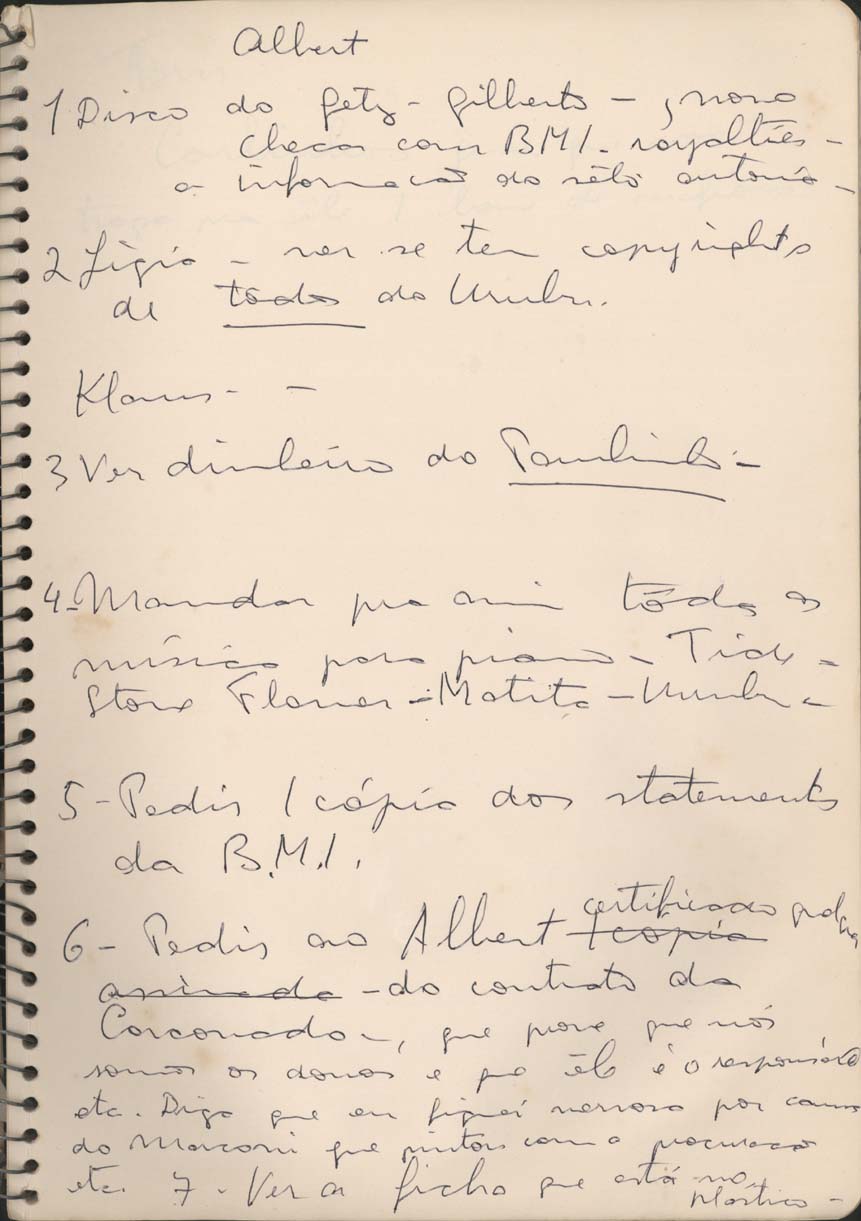 Albert
1 Disco do Getz - Gilberto - , novo
checar com BMI - royalties -
a informação do sêlo antonio -
2 Ligia - ver se tem copyrights
de todos do Urubu.
Klaus - -
3 Ver dinheiro do Paulinho -
4 - Mandar pra mim tôdas as
músicas para piano - Tide -
Stone Flower - Matita - Urubu -
5 - Pedir 1 cópia dos statements
da B.M.I.
certificado
6 - Pedir ao Albert 1 cópia
assinada - do contrato da
Corcovado -, que prove que nós
somos os donos e que êle é o responsável
etc. Diga que eu fiquei nervoso por causa
do Marconi que pintou com a procuração
etc. 7 - Ver a ficha que está no
plástico -